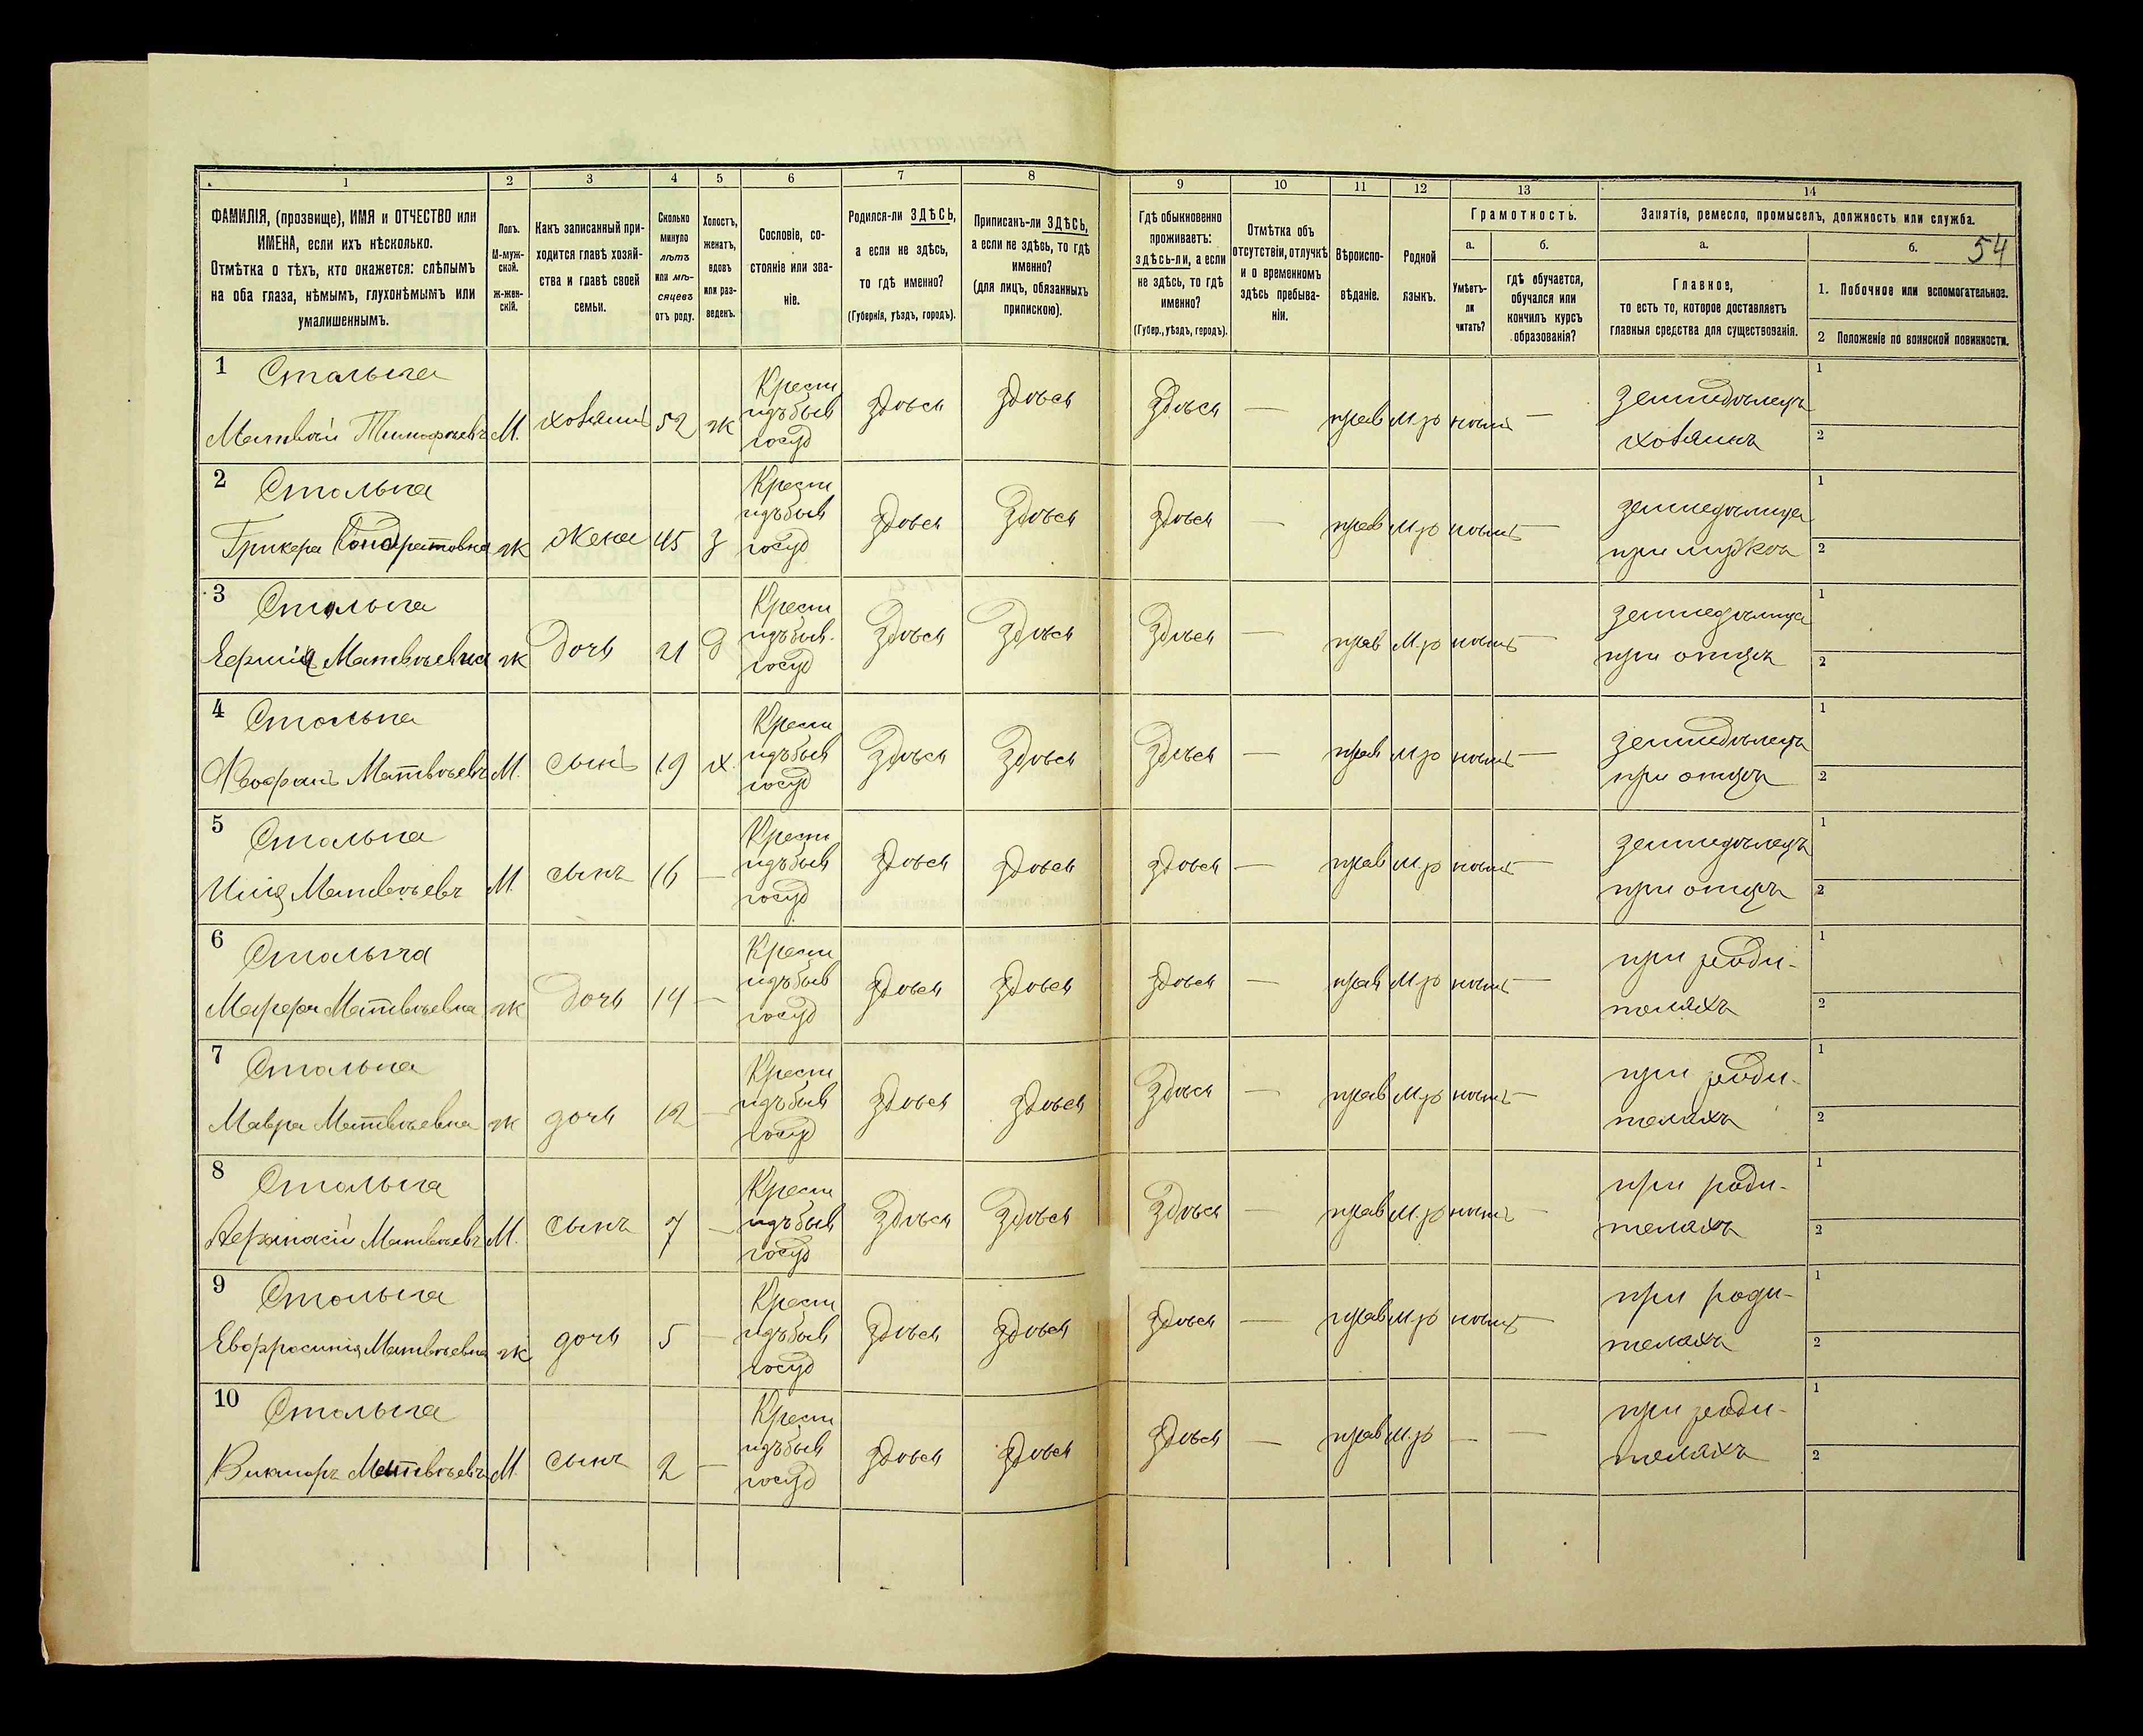 1 2 3 4 5 6 7 8 9 10 11 12 13 14
ФАМИЛІЯ, (прозвище), ИМЯ и ОТЧЕСТВО или
ИМЕНА, если ихъ нѣсколько.
Отмѣтка о тѣхъ, кто окажется: слѣпымъ
на оба глаза, нѣмымъ, глухонѣмымъ или
умалишеннымъ.
Полъ.
М-муж-
ской.
ж-жен-
скій.
Какъ записанный при-
ходится главѣ хозяй-
ства и главѣ своей
семьи.
Сколько
минуло
лѣтъ
или мѣ-
сяцевъ
отъ роду.
Холостъ,
женатъ,
вдовъ
или раз-
веденъ.
Сословіе, со-
стояніе или зва-
ніе.
Родился-ли ЗДѢСЬ,
а если не здѣсь,
то гдѣ именно?
(Губернія, уѣздъ, городъ).
Приписанъ-ли ЗДѢСЬ,
а если не здѣсь, то гдѣ
именно?
(для лицъ, обязанныхъ
припискою).
Гдѣ обыкновенно
проживаетъ:
здѣсь-ли, а если
не здѣсь, то гдѣ
именно?
(Губер., уѣздъ, городъ).
Отмѣтка объ
отсутствіи, отлучкѣ
и о временномъ
здѣсь пребыва-
ніи.
Вѣроиспо-
вѣданіе.
Родной
языкъ.
Грамотность.
а.
Умѣетъ-
ли
читать?
б.
гдѣ обучается,
обучался или
кончилъ курсъ
образованія?
Занятіе, ремесло, промыселъ, должность или служба.
а.
Главное,
то есть то, которое доставляетъ
главныя средства для существованія.
б.
54
1. Побочное или вспомогательное.
2 Положеніе по воинской повинности.
1 Крести 1
здѣсь здѣсь здѣсь земледѣлецъ
Матвѣй Тимофѣевъ М. хозяинъ 52 ж идъ быв — прав м.р нѣтъ — хозяинъ 2
госуд
2 Крести 1
здѣсь здѣсь здѣсь
Кондратовна ж жена 45 з идъ быв — прав м.р нѣтъ — при 2
госуд
3 Крести 1
здѣсь здѣсь здѣсь
Матвѣевна ж дочь 21 д идъ быв. — прав м.р нѣтъ — при отцѣ 2
госуд
4 Крести 1
здѣсь здѣсь здѣсь земледѣлецъ
Матвѣевъ М. сынъ 19 х. идъ быв — прав м.р нѣтъ — при отцѣ 2
госуд
5 Крести 1
здѣсь здѣсь здѣсь земледѣлецъ
Матвѣевъ М. сынъ 16 — идъ быв — прав м.р нѣтъ — при отцѣ 2
госуд
6 Крести 1
здѣсь здѣсь здѣсь при роди-
Матвѣевна ж дочь 14 — идъ быв — прав м.р нѣтъ — теляхъ 2
госуд
7 Крести 1
здѣсь здѣсь здѣсь при роди-
Мавра Матвѣевна ж дочь 12 — идъ быв — прав м.р нѣтъ — теляхъ 2
госуд
8 Крести 1
здѣсь здѣсь здѣсь при роди-
Матвѣевъ М. сынъ 7 — идъ быв — прав м.р нѣтъ — теляхъ 2
госуд
9 Крести 1
здѣсь здѣсь здѣсь при роди-
Евфросинія Матвѣевна ж дочь 5 — идъ быв — прав м.р нѣтъ — теляхъ 2
госуд
10 Крести 1
здѣсь здѣсь здѣсь при роди-
Викторъ Матвѣевъ М. сынъ 2 — идъ быв — прав м.р — — теляхъ 2
госуд